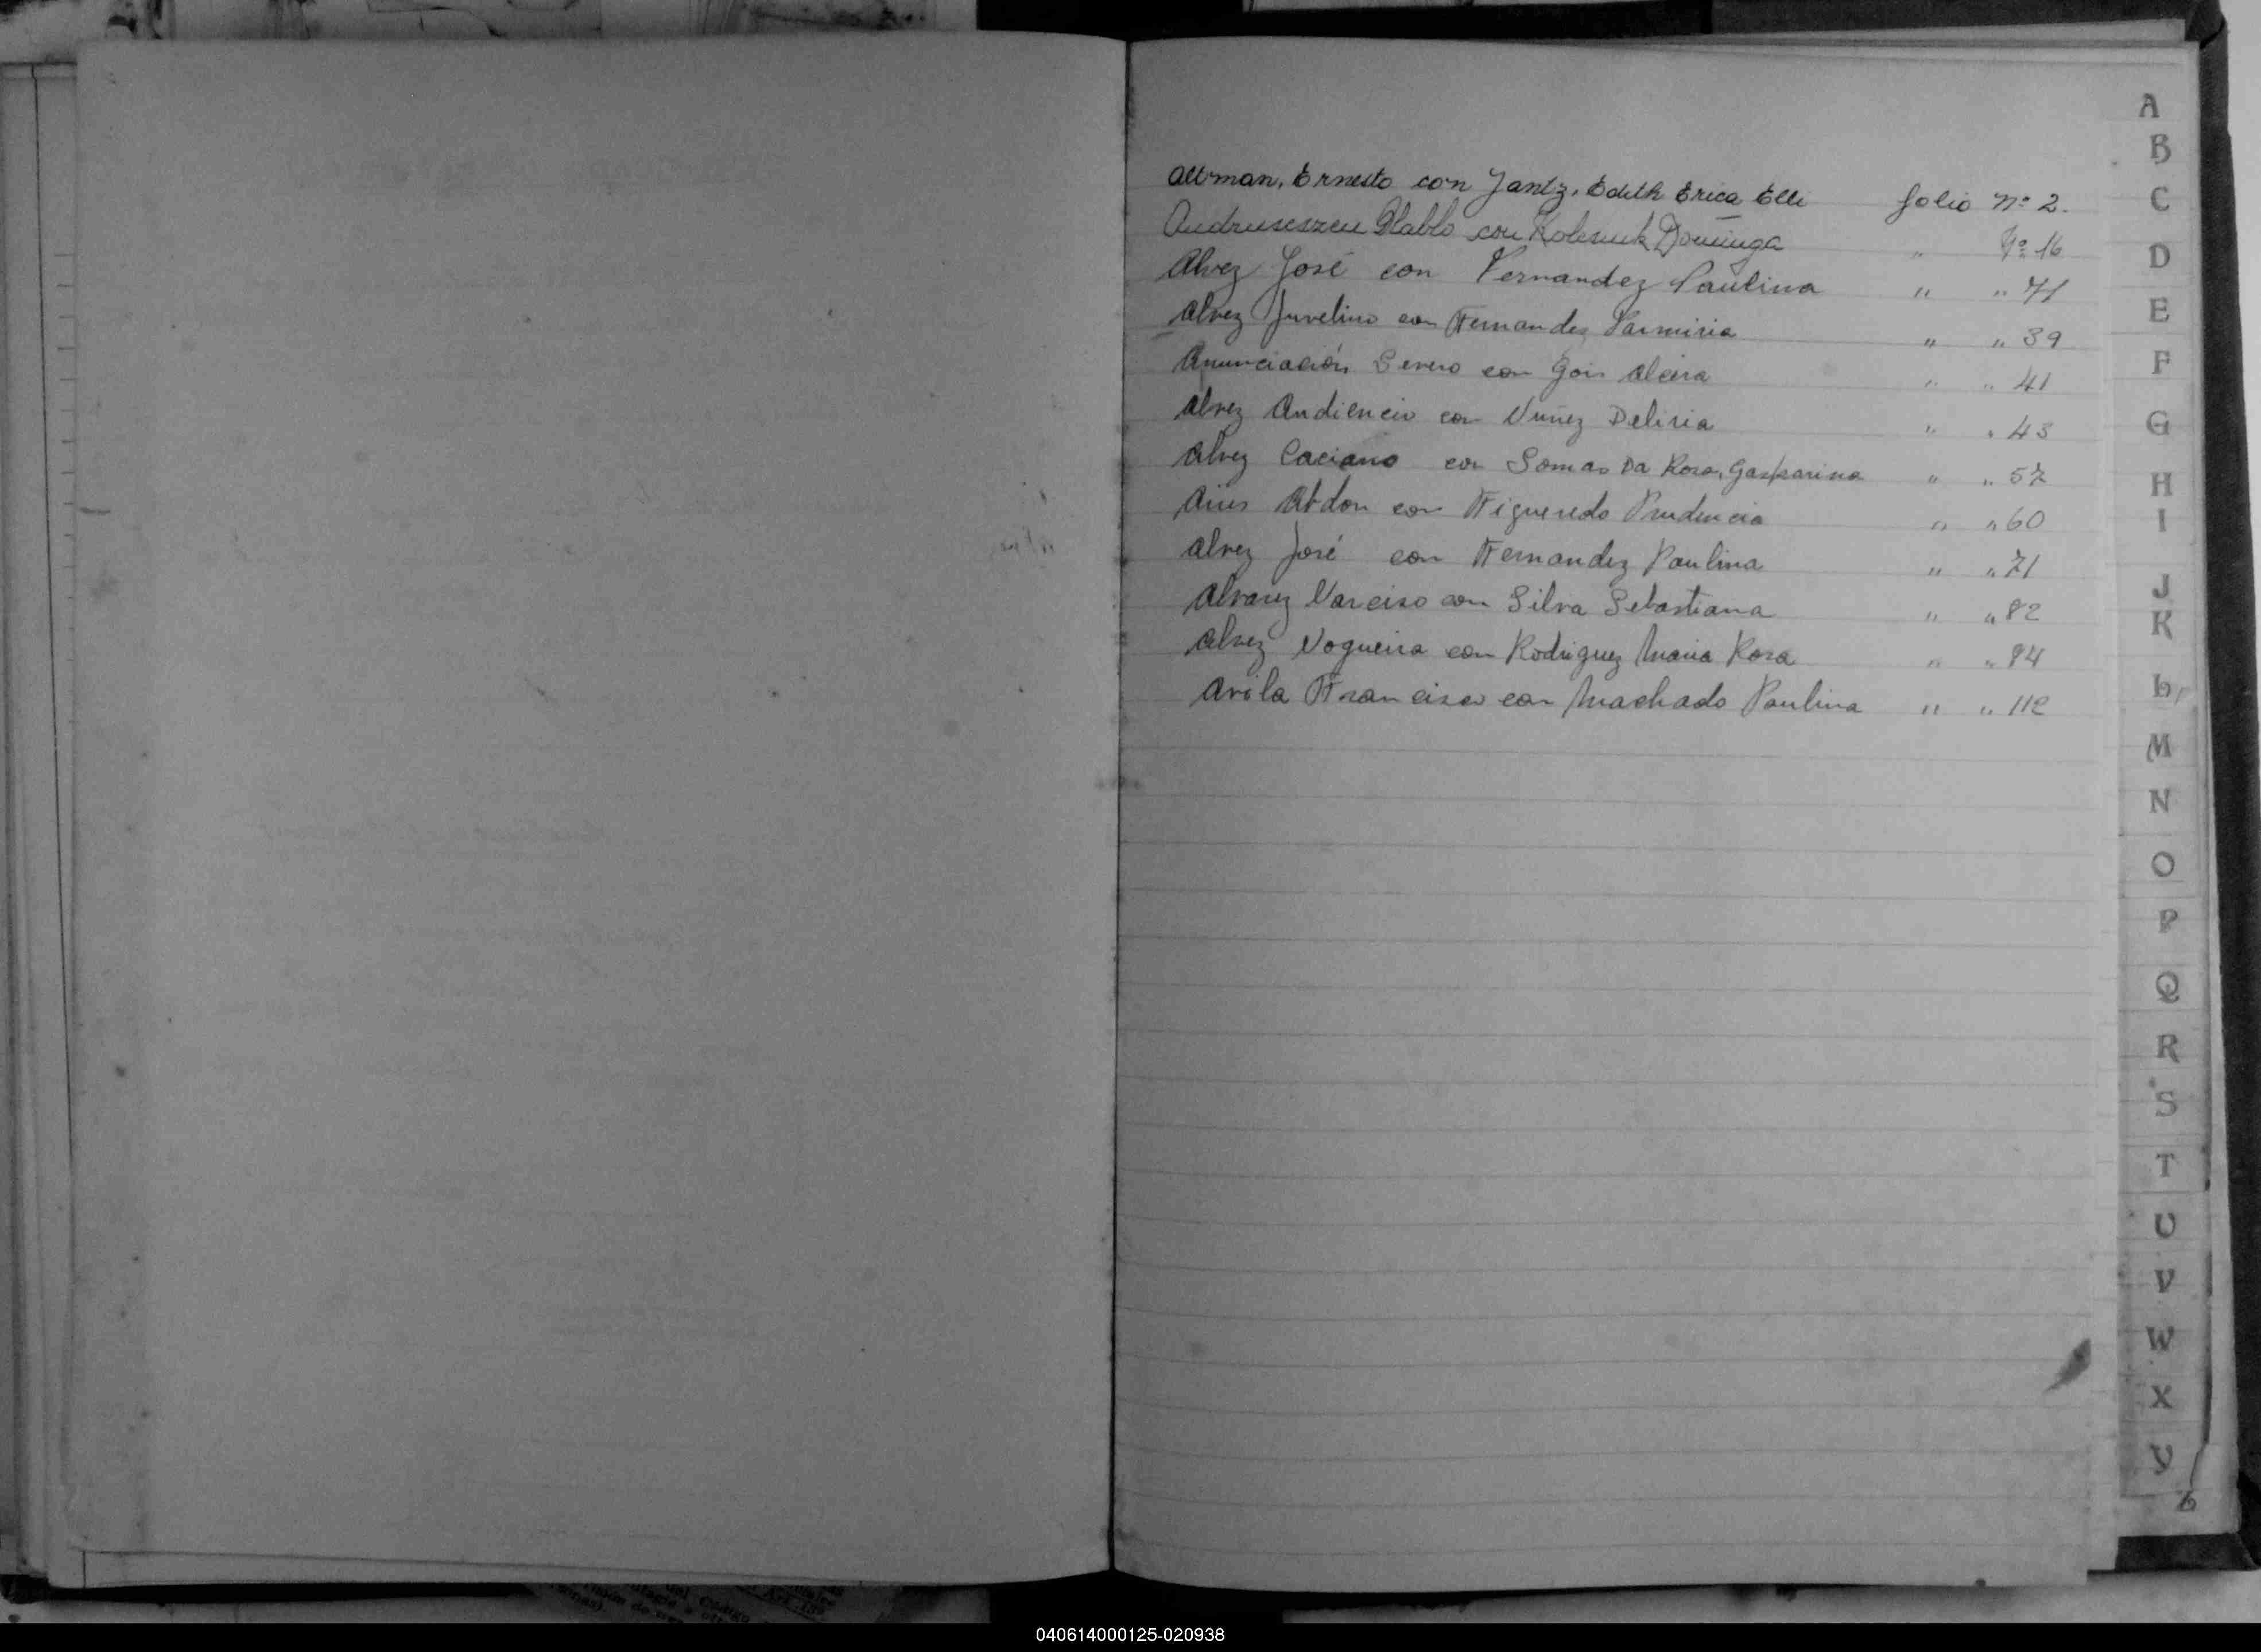 Altman, Ernesto con Jantz, Edith Erica Elli folio Nº 2.
Pablo con Dominga " Nº 16
Alvez José con Fernandez Paulina " " 71
Alvez Juvelino con Fernandez " " 39
Anunciación Severo con Gois Alcira " " 41
Alvez Audiencio con Nuñez Deliria " " 43
Alvez Caciano con Somas Da Rosa, Gasparina " " 57
Abdon con Figueredo Prudencia " " 60
Alvez José con Fernandez Paulina " " 71
Alvarez Narciso con Silva Sebastiana " " 82
Alvez Nogueira con Rodriguez Maria Rosa " " 84
Avila Francisco con Machado Paulina " " 112
A
B
C
D
E
F
G
H
I
J
K
L
M
N
O
P
Q
R
S
T
U
V
W
X
Y
040614000125-020938